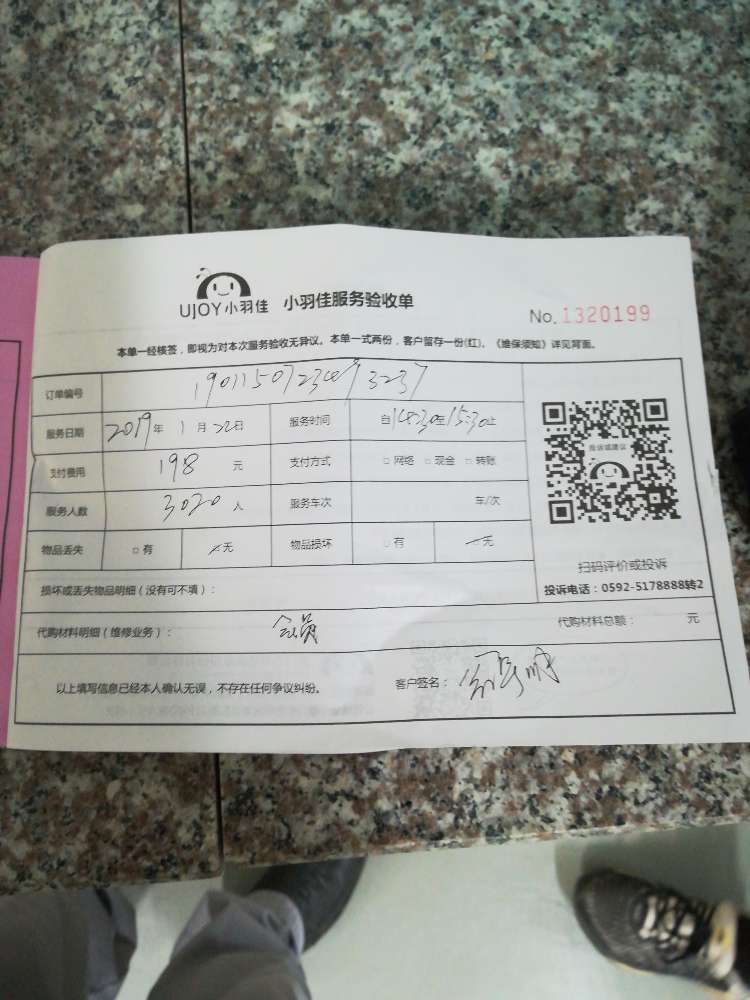 UJOY小羽佳 小羽佳服务验收单
No.1320199
本单一经核签，即视为对本次服务验收无异议。本单一式两份，客户留存一份(红)。《维保须知》详见背面。
订单编号
服务日期 2019年 1月 22日 服务时间 自14:30至15:30止
支付费用 198 元 支付方式 □网络 □现金 □转账
服务人数 3020 人 服务车次 车/次
物品丢失 □有 无 物品损坏 □有 无
损坏或丢失物品明细（没有可不填）：
代购材料明细（维修业务）： 会员 代购材料总额： 元
以上填写信息已经本人确认无误，不存在任何争议纠纷。 客户签名：
投诉或建议
扫码评价或投诉
投诉电话：0592-5178888转2